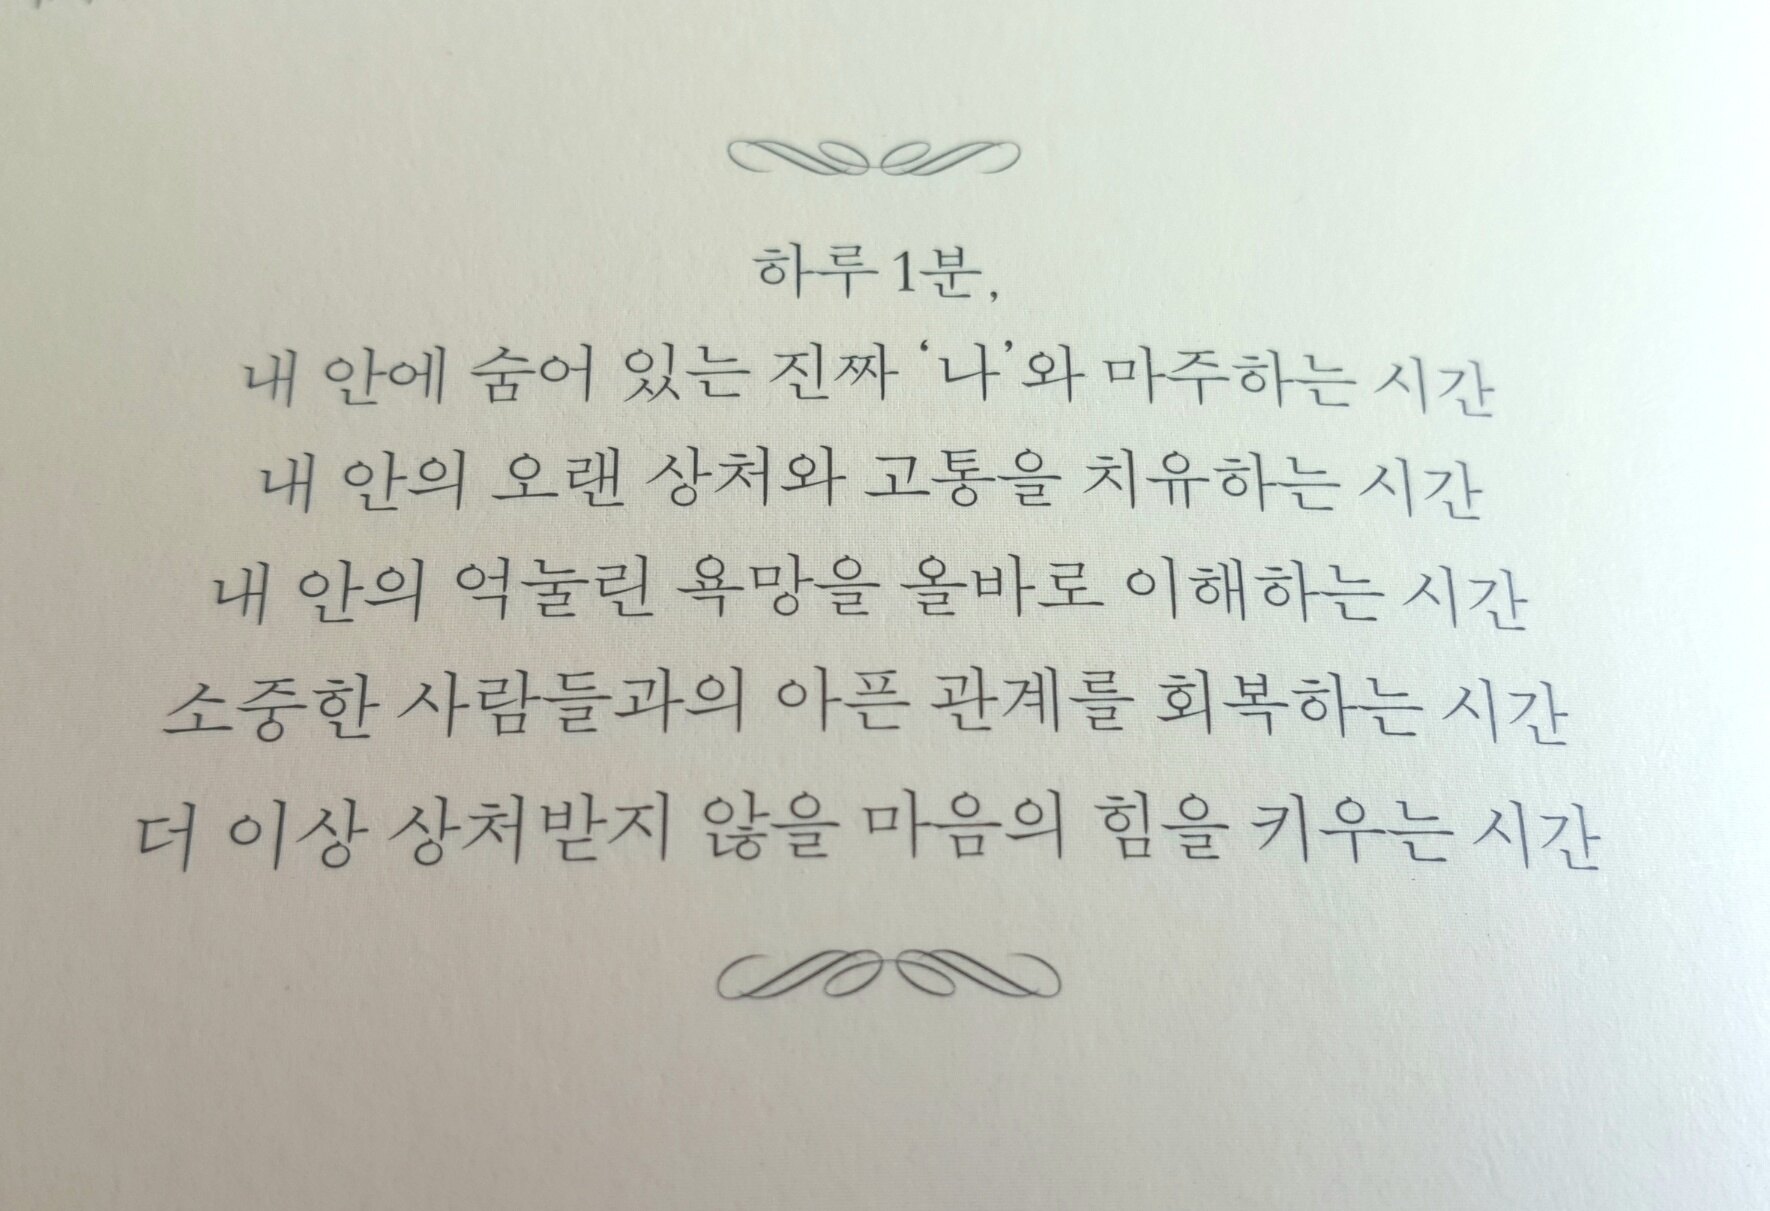 하루 1분,
내 안에 숨어 있는 진짜 ‘나’와 마주하는 시간
내 안의 오랜 상처와 고통을 치유하는 시간
내 안의 억눌린 욕망을 올바로 이해하는 시간
소중한 사람들과의 아픈 관계를 회복하는 시간
더 이상 상처받지 않을 마음의 힘을 키우는 시간